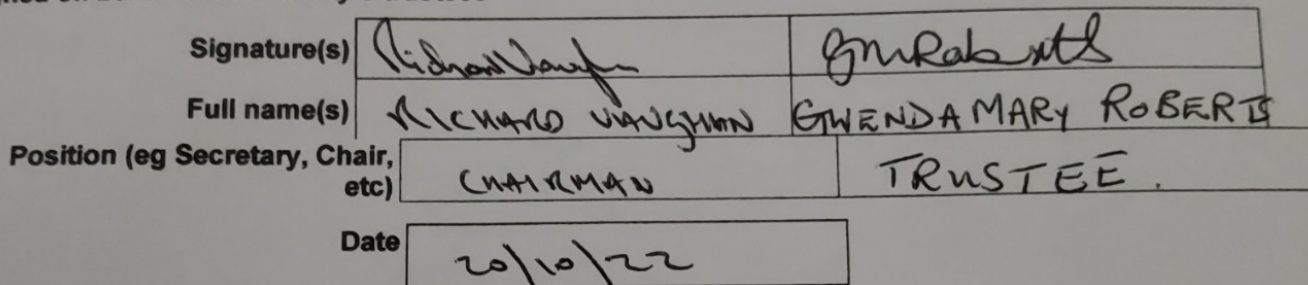 Signature(s) Richard Vaughan GMRoberts
Full name(s) RICHARD VAUGHAN GWENDA MARY ROBERTS
Position (eg Secretary, Chair,
etc) CHAIRMAN TRUSTEE.
Date 20/10/22